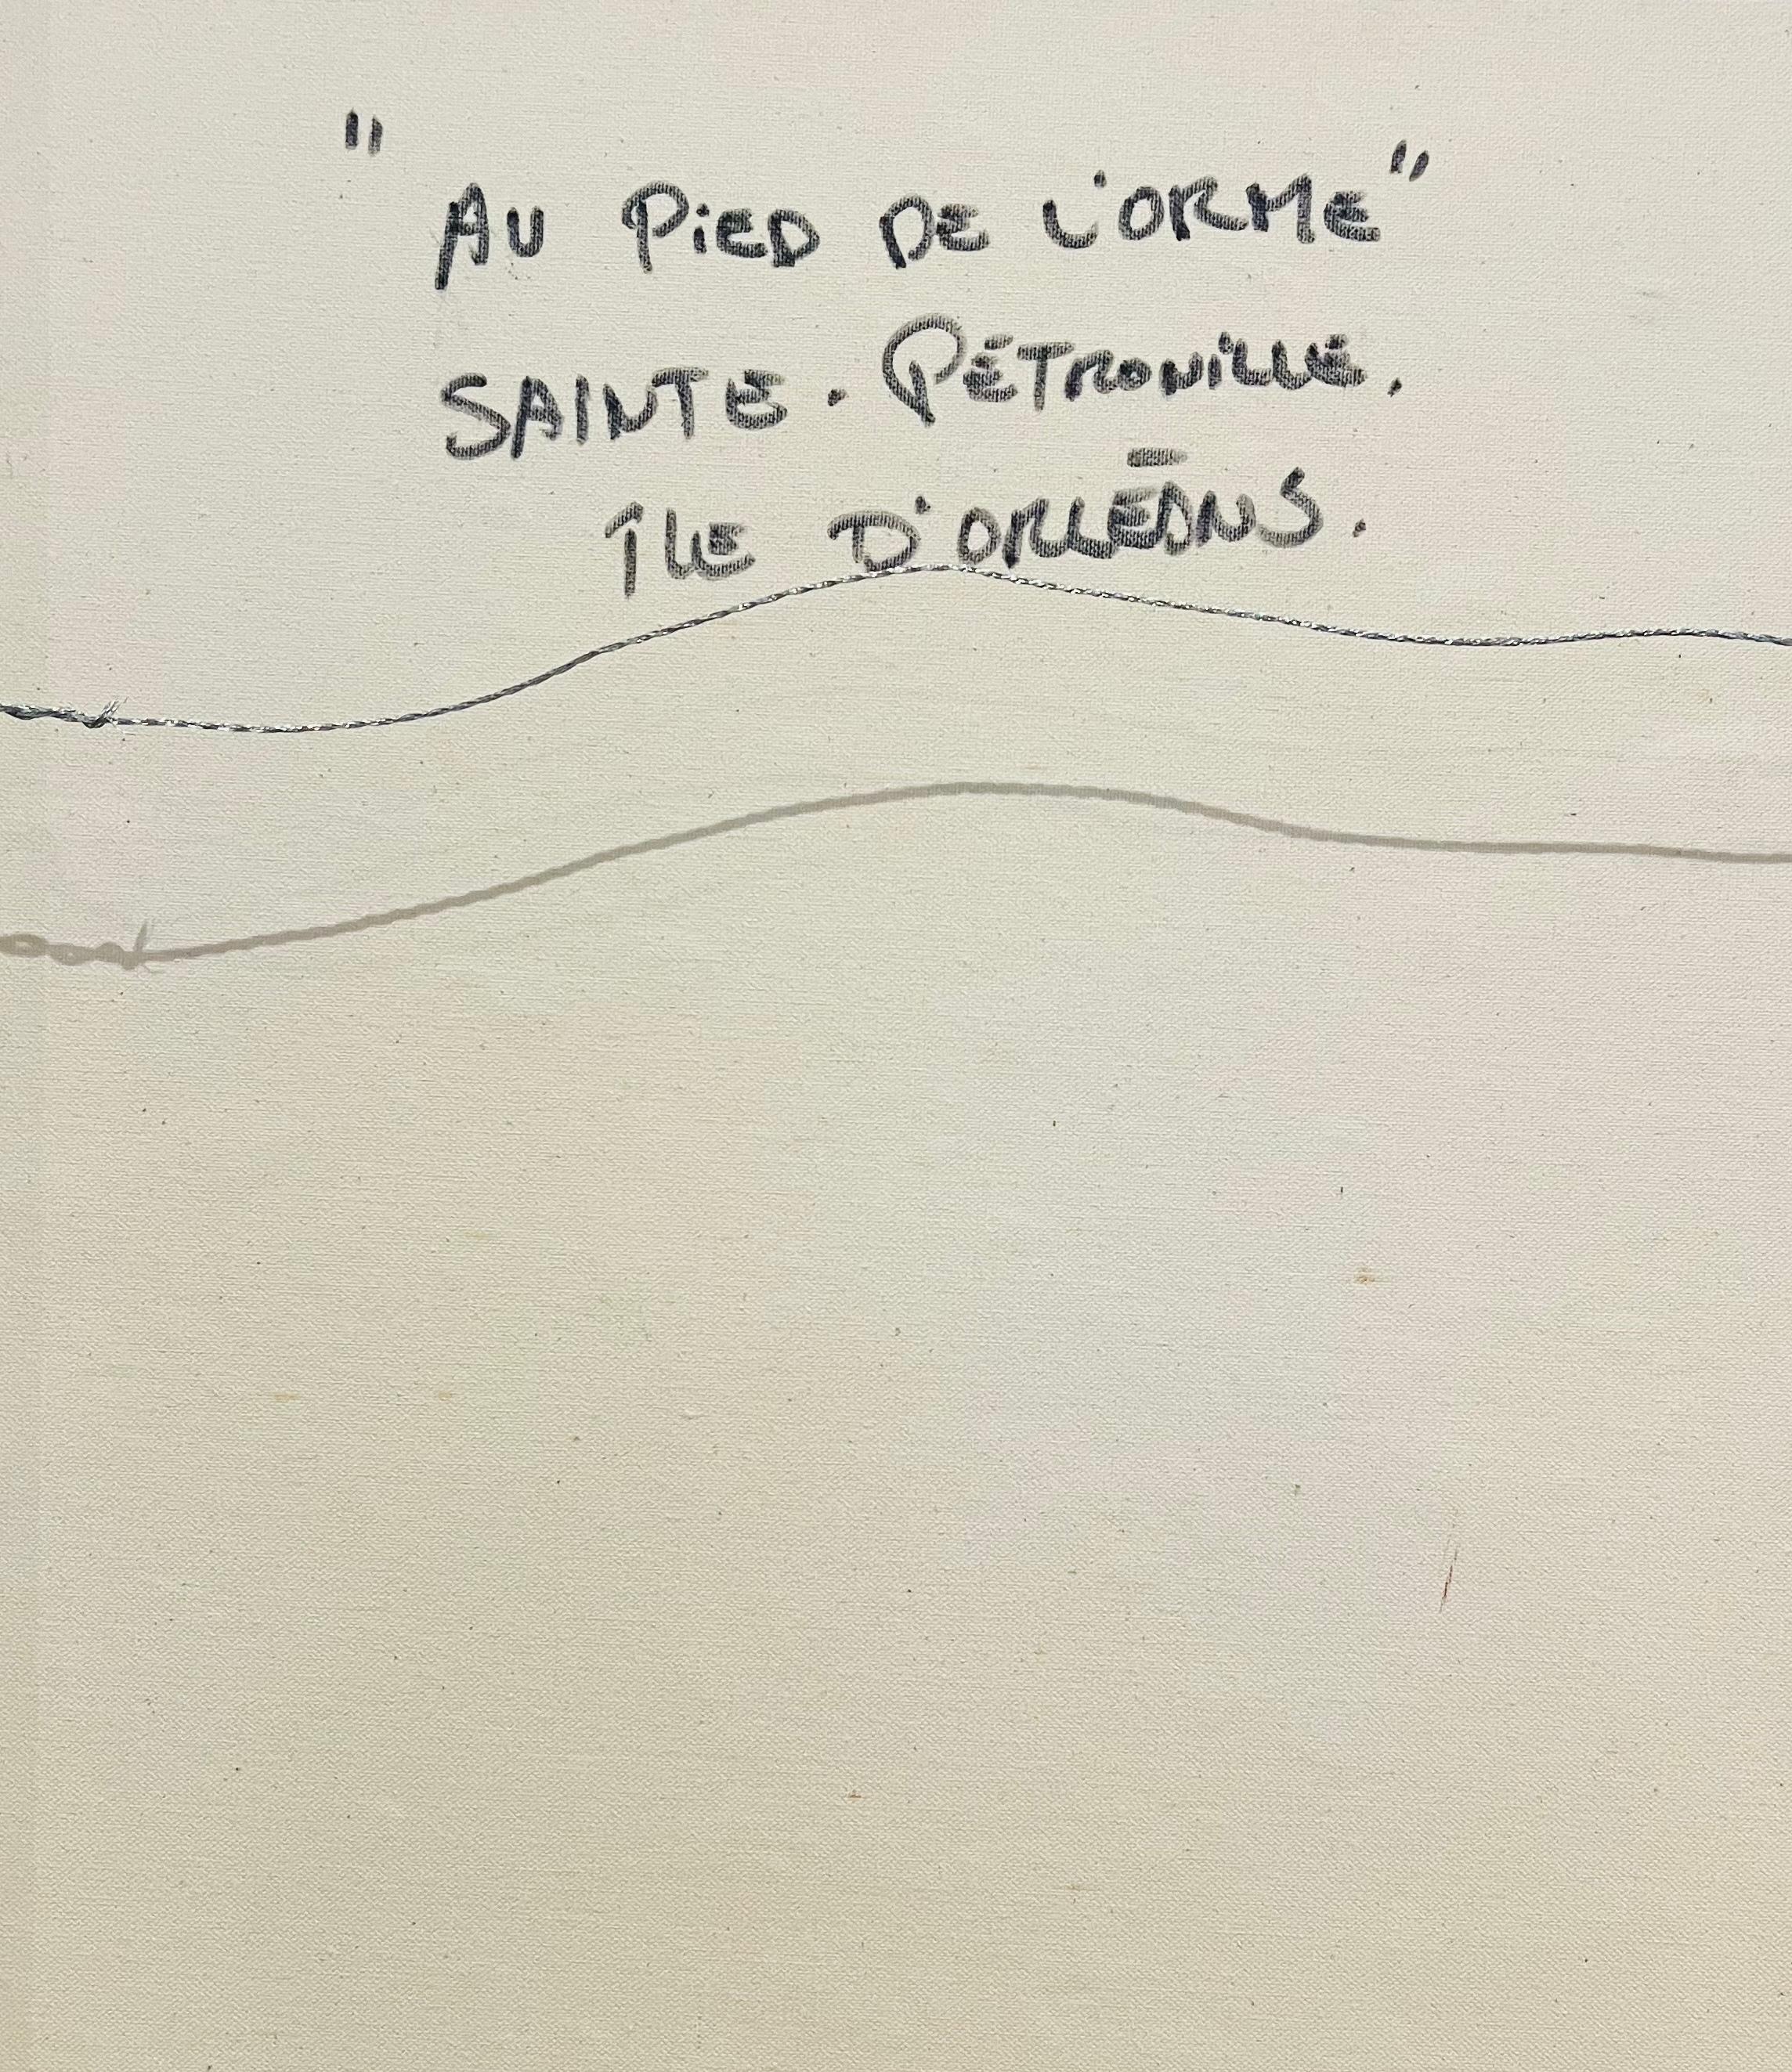 "AU PiED DE L'ORME"
SAINTE. PÉTRONiLLE.
ÎLE D'ORLÉANS.